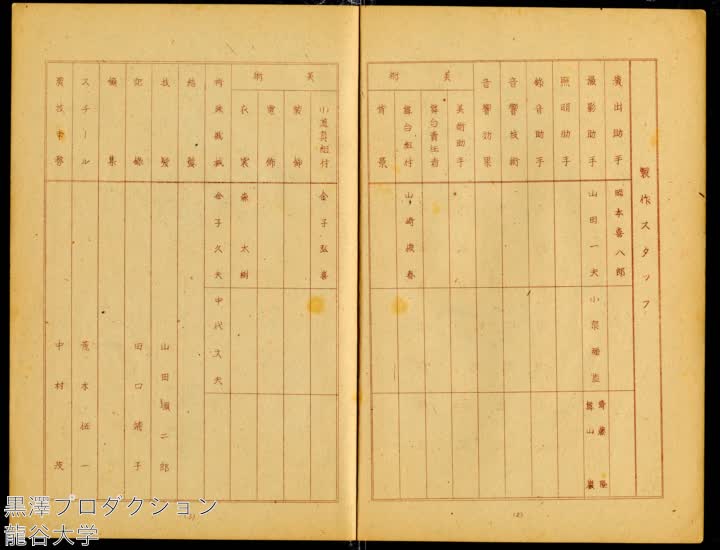 製作スタッフ
演出助手 岡本喜八郎
撮影助手 山田一夫 小泉福造 斎藤 陸山
照明助手
録音助手
音響技術
音響効果
美術
美術助手
舞台責任者
舞台組付 山崎
背景
美術
小道具組付 金子弘喜
装飾
電飾
衣裳 森太樹
特殊機械 金子久夫 中代文夫
結髪
技髪 山田順二郎
記録 田口靖子
編集
スチール 荒木伍一
演技事務 中村茂
(2)
黒澤プロダクション
龍谷大学